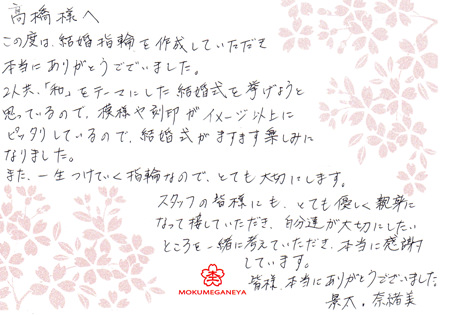 高橋様へ
この度は、結婚指輪を作成していただき
本当にありがとうございました。
2人共、「和」をテーマにした結婚式を挙げようと
思っているので、模様や刻印がイメージ以上に
ピッタリしているので、結婚式がますます楽しみに
なりました。
また、一生つけていく指輪なので、とても大切にします。
スタッフの皆様にも、とても優しく親身に
なって接していただき、自分達が大切にしたい
ところを一緒に考えていただき、本当に感謝
しています。
皆様、本当にありがとうございました。
景太。奈緒美
MOKUMEGANEYA